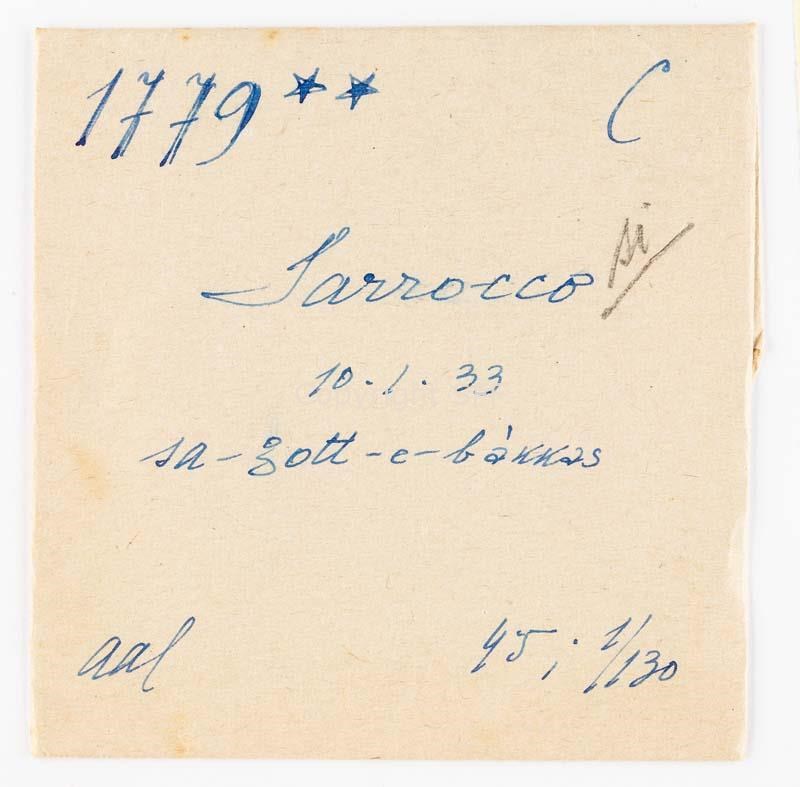 1779** C
Sarrocco
10.1.33
sa-gott-e-bàkkas
aal 45; 1/130